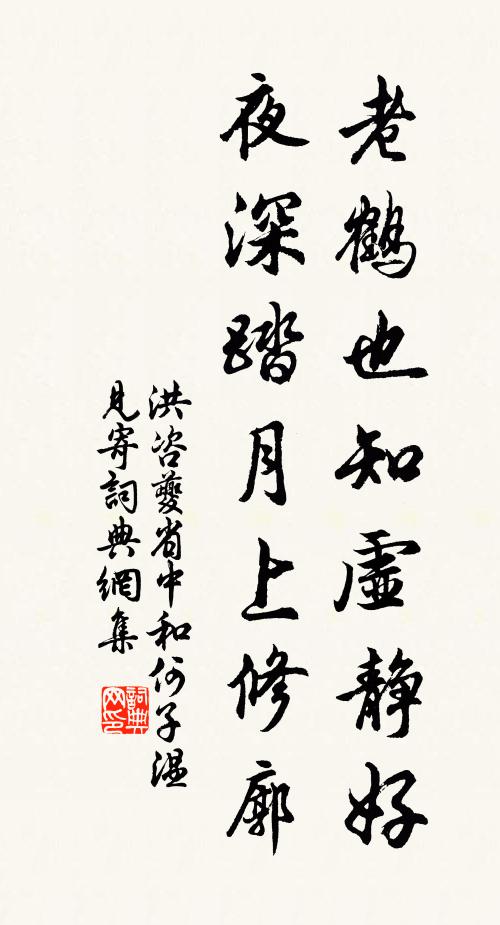 老鶴也知虛靜好
夜深踏月上修廓
洪咨夔省中和何子溫
見寄詞典網集
詞典网印